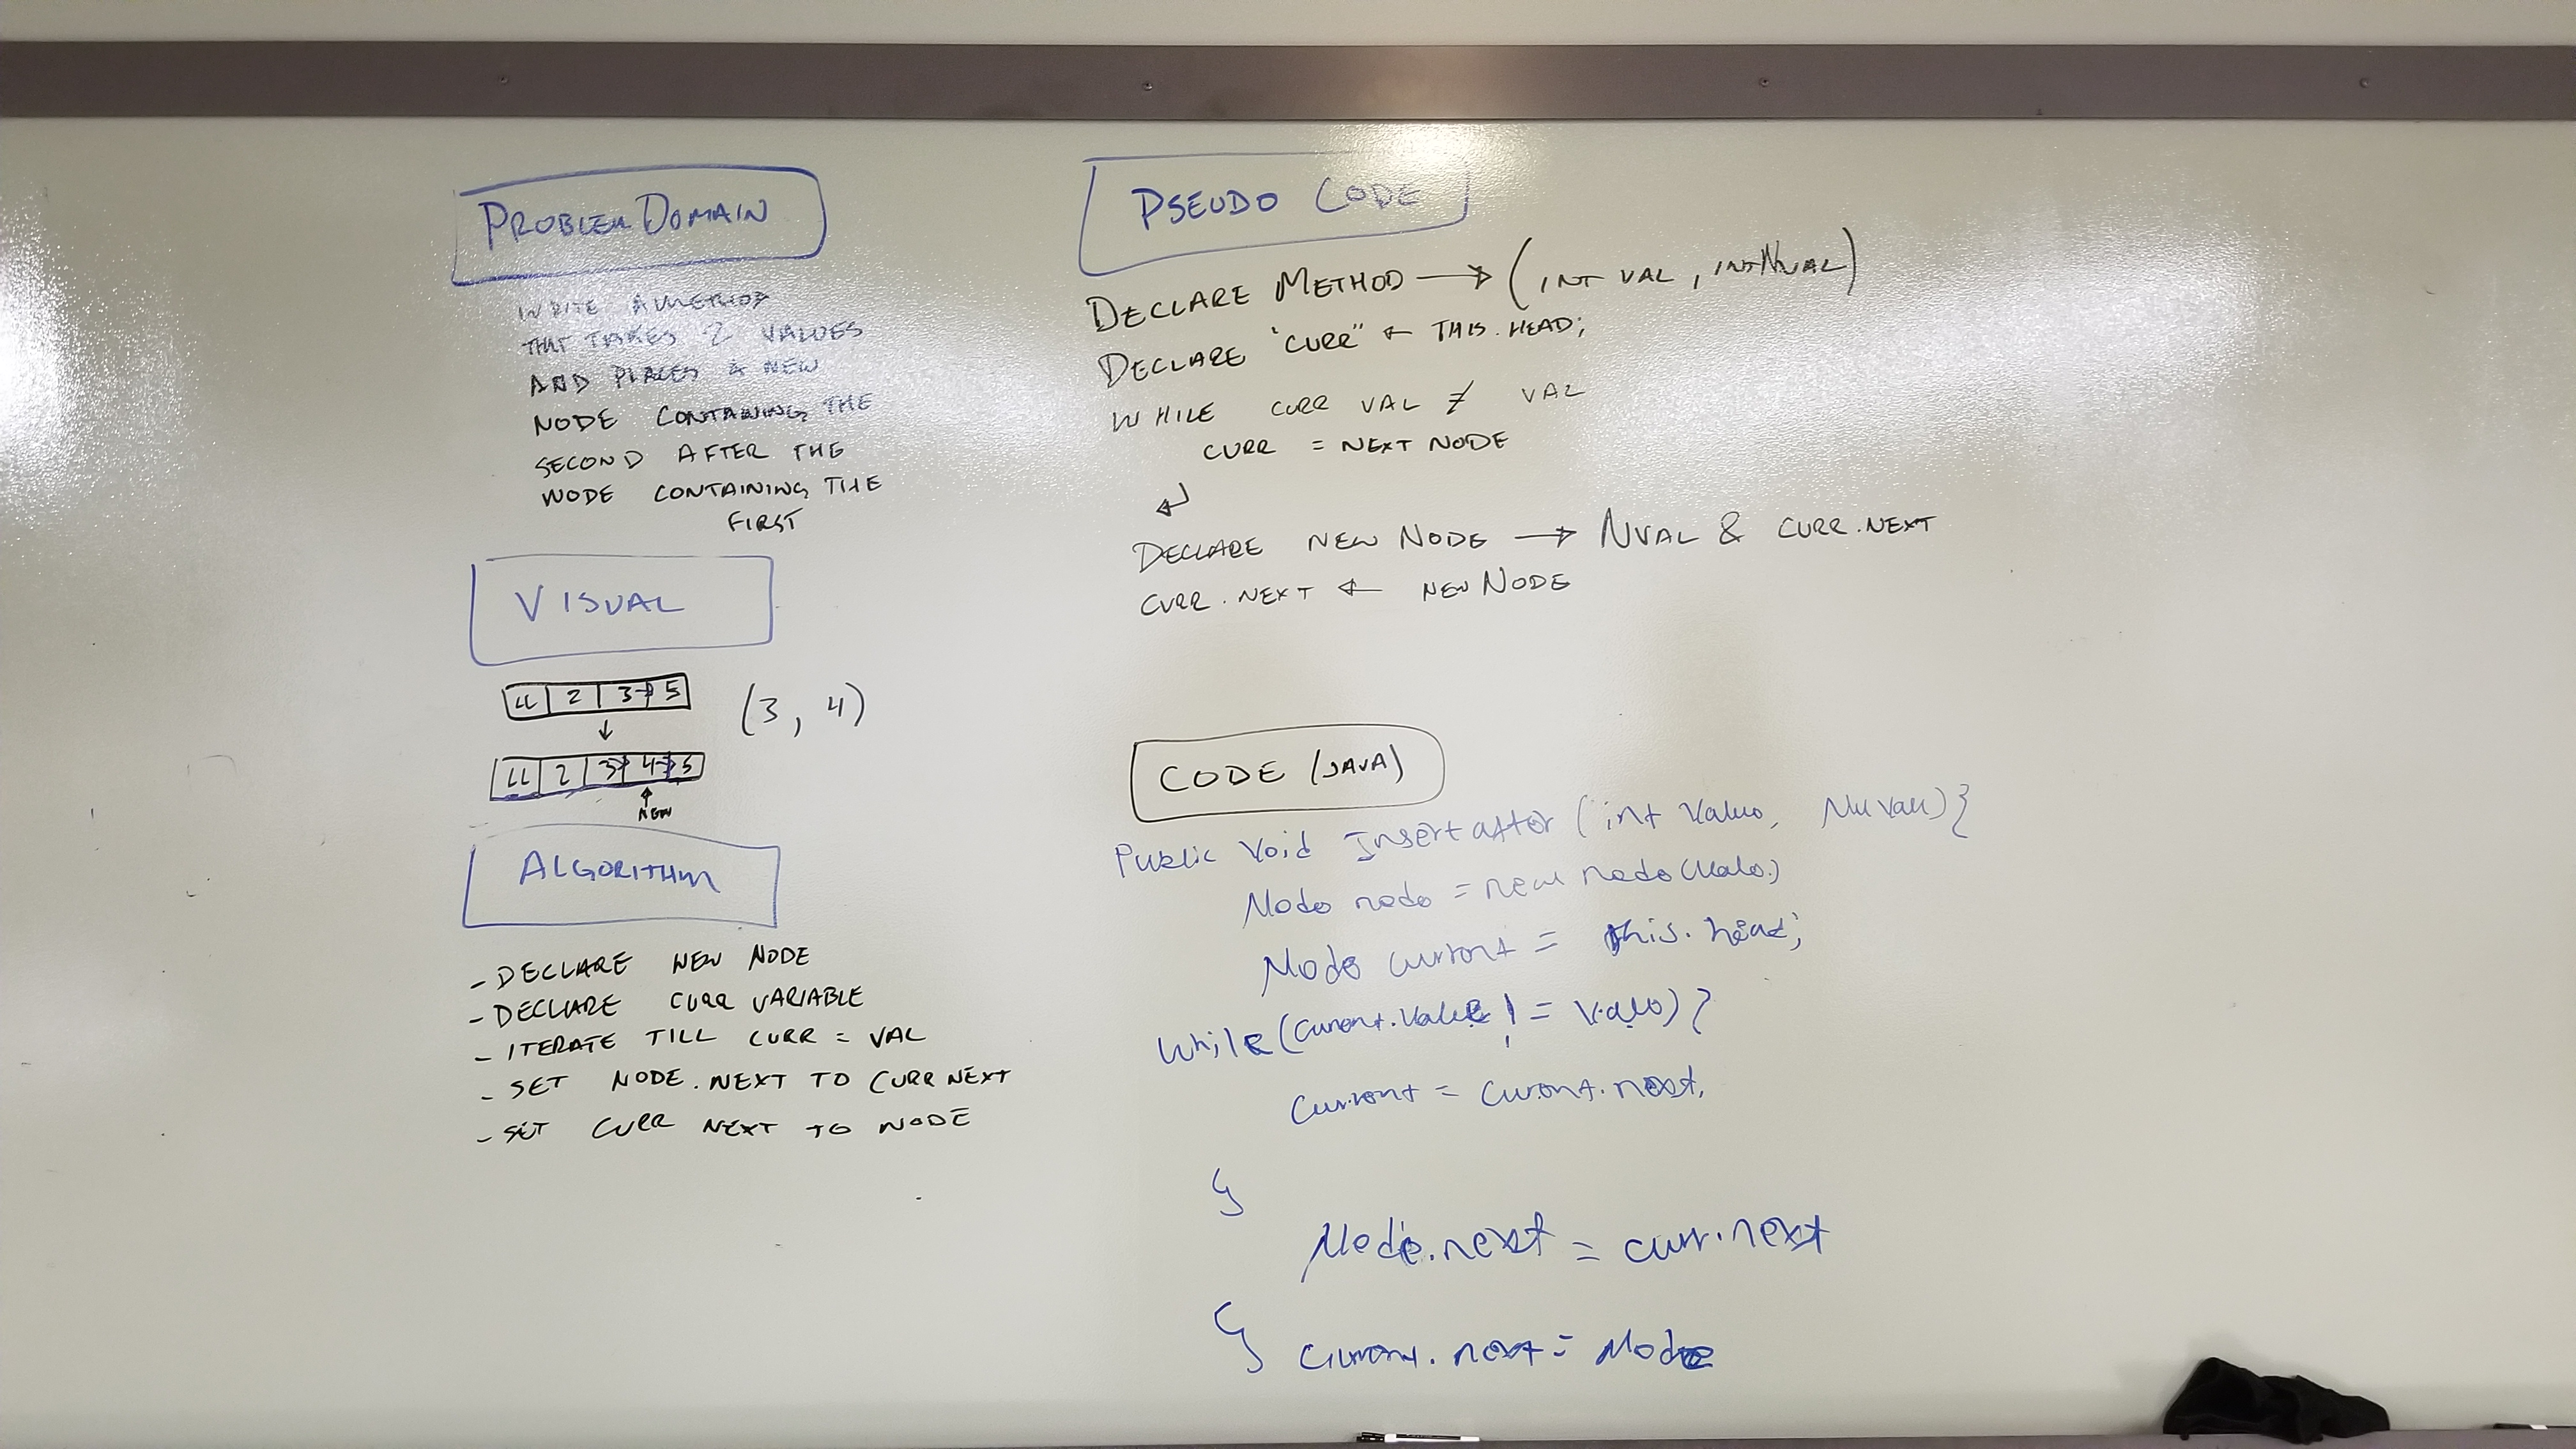 PROBLEM DOMAIN
WRITE A METHOD
THAT TAKES 2 VALUES
AND PLACES A NEW
NODE CONTAINING THE
SECOND AFTER THE
NODE CONTAINING THE
FIRST
VISUAL
LL 2 3 5
(3, 4)
LL 2 3 4 5
NEW
ALGORITHM
- DECLARE NEW NODE
- DECLARE CURR VARIABLE
- ITERATE TILL CURR = VAL
- SET NODE.NEXT TO CURR NEXT
- SET CURR NEXT TO NODE
PSEUDO CODE
DECLARE METHOD → (INT VAL, INT NVAL)
DECLARE "CURR" ← THIS.HEAD;
WHILE CURR VAL ≠ VAL
CURR = NEXT NODE
↲
DECLARE NEW NODE → NVAL & CURR.NEXT
CURR.NEXT ← NEW NODE
CODE (JAVA)
Public Void Insertafter (int Value, ){
Node node = new node(Value)
Node current = this.head;
while(current.value != value) }
current = current.next;
}
Node.next = curr.next
} current.next = Node